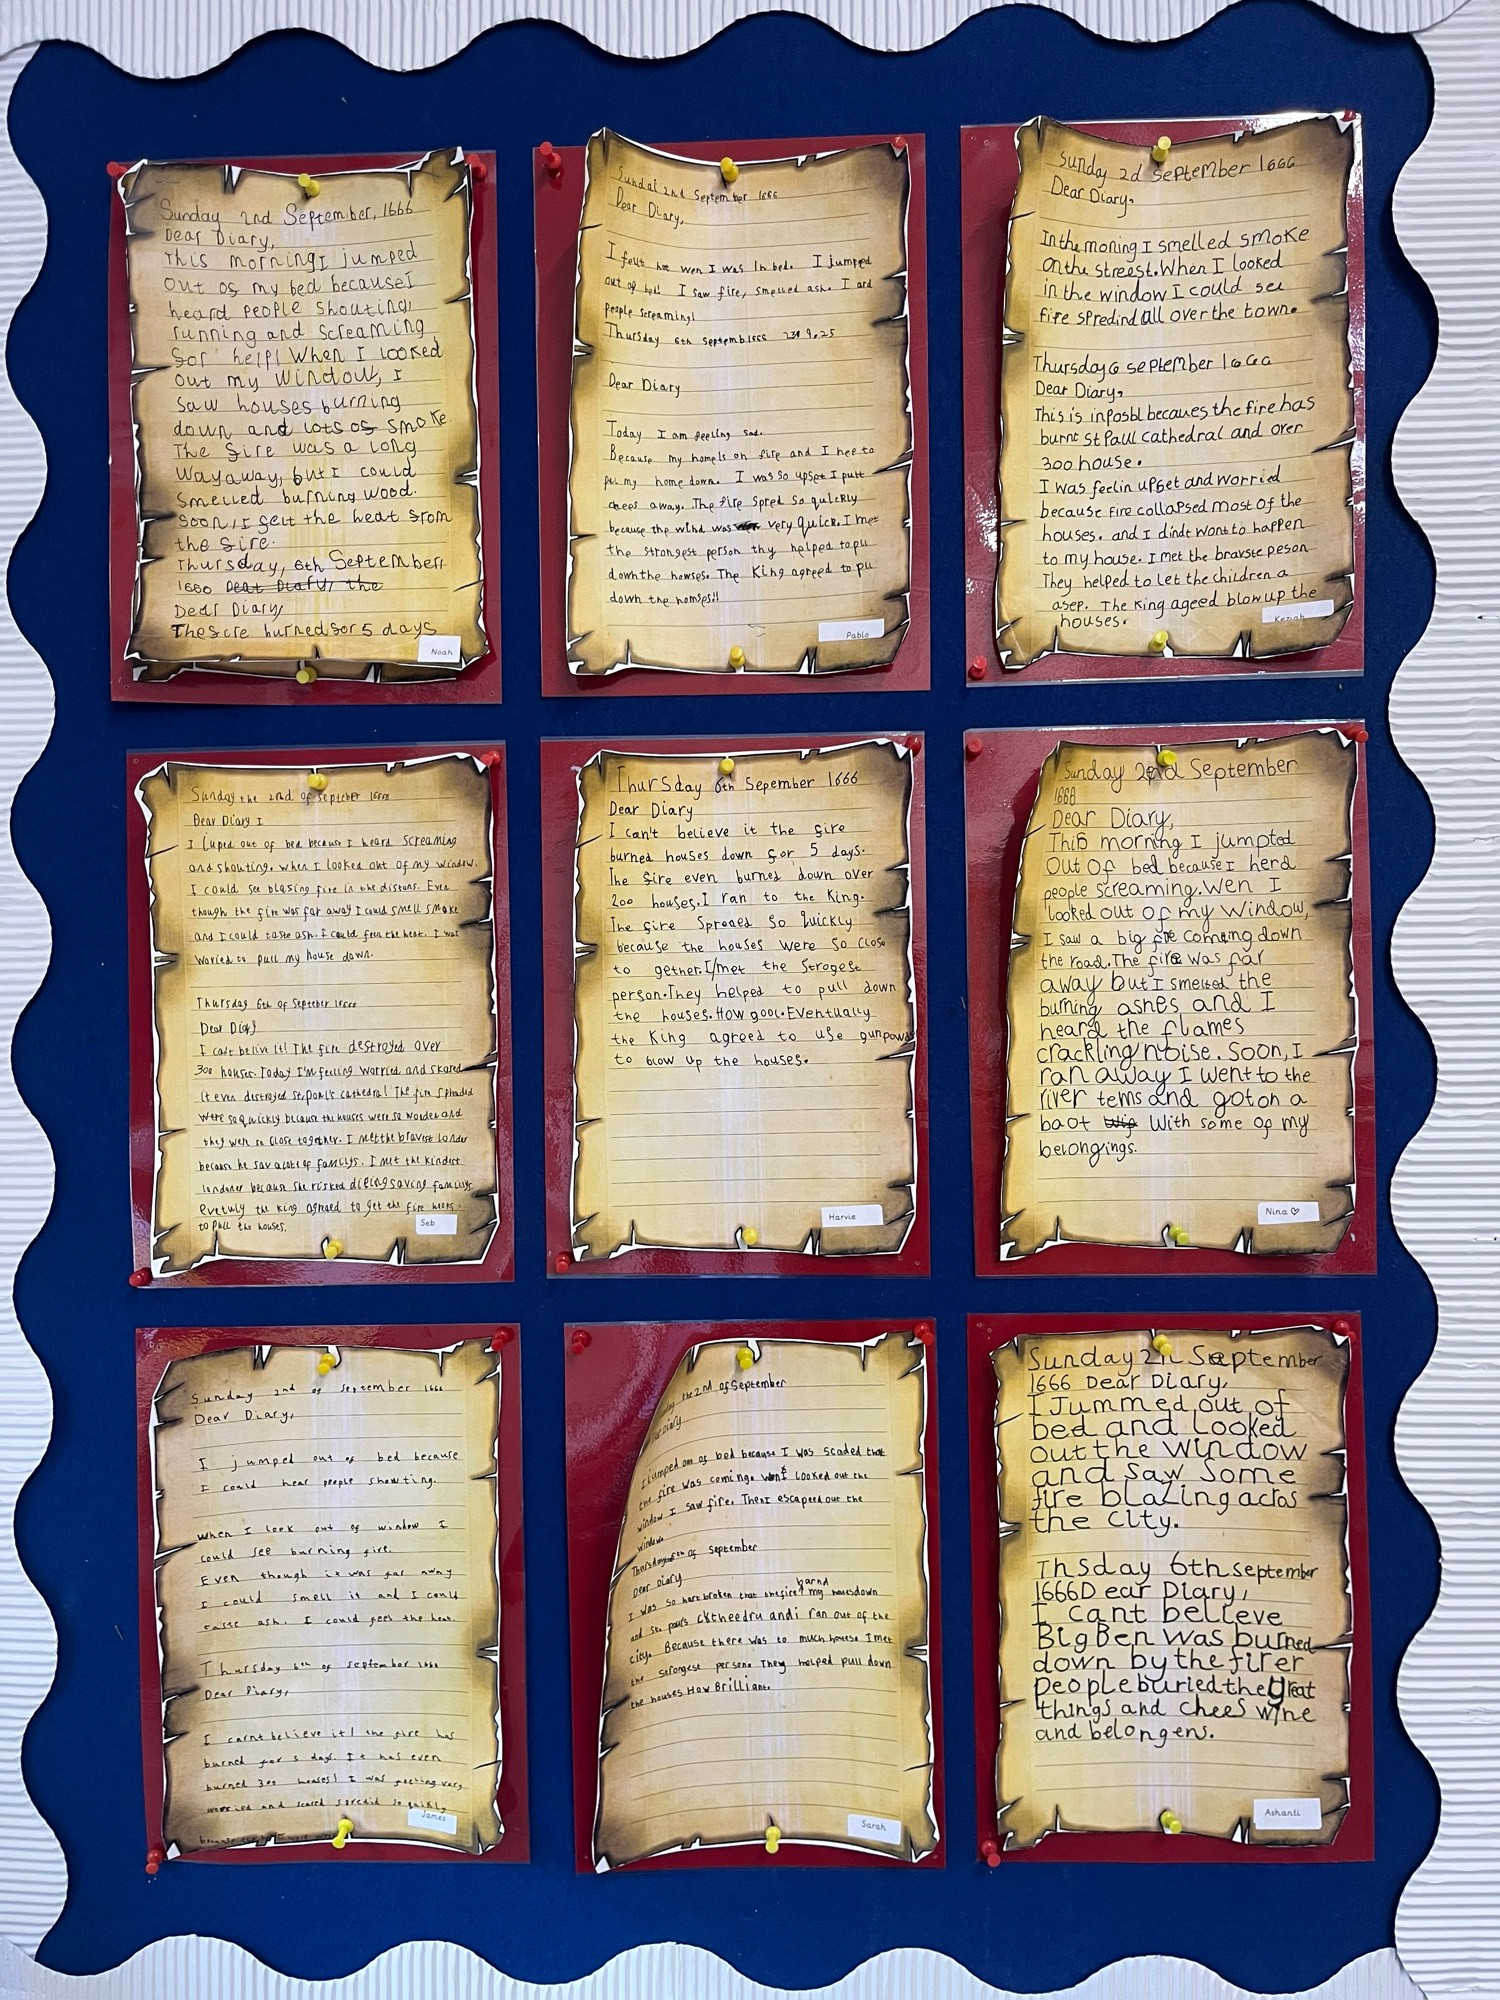 Sunday 2nd September, 1666
Dear Diary,
This morning I jumped
out of my bed because I
heard people shouting,
running and screaming
for help! When I looked
out my window, I
saw houses burning
down and lots of smoke.
The fire was a long
way away, but I could
smelled burning wood.
Soon, I felt the heat from
the fire.
Thursday, 6th September,
1660 Dear Diary, the
Dear Diary,
The fire burned for 5 days
Noah
Sundai 2nd September 1666
Dear Diary,
I felt hot wen I was In bed. I jumped
out of bed! I saw fire, smelled ash. I ard
people screaming!
Thursday 6th Septemb1666
Dear Diary
Today I am feeling sad.
Because my home Is on fire and I hee to
pu my home down. I was so upset I putt
chees away. The fire spred so quickly
because the wind was very quick. I met
the strongest person thy helped to pu
down the howses. The King agreed to pu
down the homses!!
Pablo
Sunday 2d September 1666
Dear Diary,
In the moning I smelled smoke
on the streest. When I looked
in the window I could see
fire spredind all over the town.
Thursday 6 september 1666
Dear Diary,
This is inposbl becaues the fire has
burnt st Paul cathedral and over
300 house.
I was feelin upset and worried
because fire collapsed most of the
houses. and I dindt wont to happen
to my house. I met the bravste peson
They helped to let the children a
asep. The King ageed blow up the
houses.
Keziah
Sunday the 2nd of Septeber 1666
Dear Diary I
I Luped out of bed because I heard screaming
and shouting. when I looked out of my window.
I could see blasing fire in the distans. Even
though the fire was far away I could smell smoke
and I could taste ash. I could feel the heat. I was
Woried to pull my house down.
Thursday 6th of Septeber 1666
Dear Diary
I cant belive it! The fire destroyed over
300 houses. Today I'm feeling worried and skared
It even destroyed st. paul's cathedral! The fire spreaded
were so quickly because the houses were so wooden and
they were so close together. I met the bravest londer
because he sav a lots of familys. I met the kindest
londoner because she risked dieing saving familys
evetuly the king agreed to get the fire hooks
to pull the houses.
Seb
Thursday 6th Sepember 1666
Dear Diary
I can't believe it the fire
burned houses down for 5 days.
The fire even burned down over
200 houses. I ran to the King.
The fire Spread so quickly
because the houses were so close
to gether. I met the Strogest
person. They helped to pull down
the houses. How gool. Eventually
the King agreed to use gunpowder
to blow up the houses.
Harvie
Sunday 2nd September
1666
Dear Diary,
This morning I jumpted
out of bed because I herd
people screaming. Wen I
looked out of my window,
I saw a big fire coming down
the road. The fire was far
away but I smelled the
burning ashes and I
heard the flames
crackling noise. Soon, I
ran away I went to the
river tems and got on a
baot With some of my
belongings.
Nina ♡
Sunday 2nd of September 1666
Dear Diary,
I jumped out of bed because
I could hear people showting.
When I look out of window I
could see burning fire.
Even though it was far away
I could smell it and I could
taste ash. I could feel the heat.
Thursday 6th of September 1666
Dear Diary,
I carnt believe it! the fire has
burned for 5 days. It has even
burned 300 houses! I was feeling very
worried and scared spredid so quikly
because the
James
the 2nd of September
Diary
I Lumped out of bed because I was scaded that
the fire was coming. wen I looked out the
window I saw fire. Then I escaped out the
window
Thursday 6th of September
Dear Diary
I was so hartbroken that the fire barnd my housdown
and St. pauls cktheedru and i ran out of the
city. Because there was to much houses I met
the strongest person. They helped pull down
the houses How Brilliant.
Sarah
Sunday 2n September
1666 Dear Diary,
I Jummed out of
bed and looked
out the window
and saw some
fire blazing acros
the city.
Thsday 6th september
1666 Dear Diary,
I cant believe
Big Ben was burned
down by the firer
people buried the great
things and chees wine
and belongens.
Ashanti